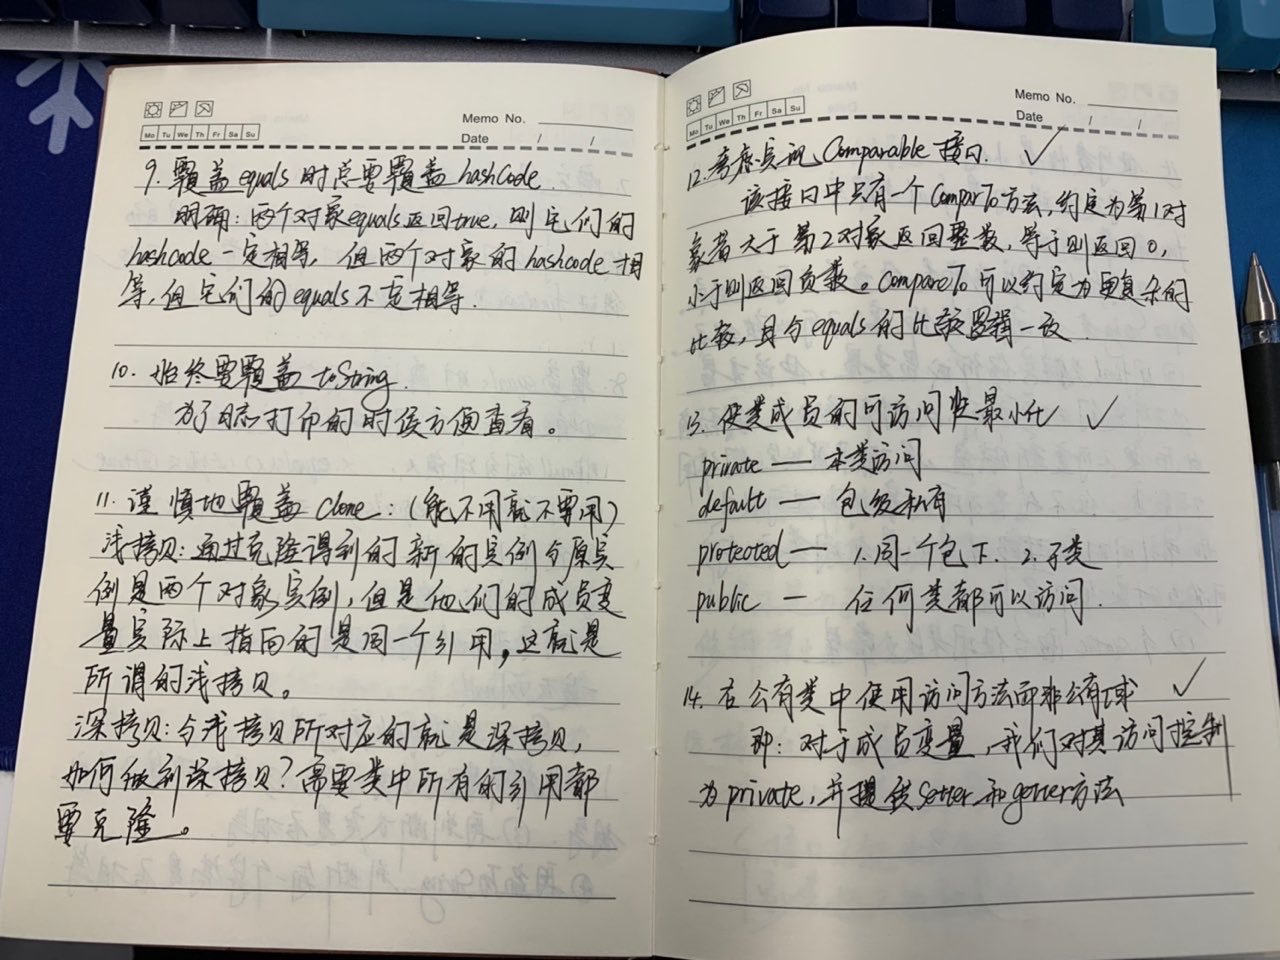 Memo No.
Mo Tu We Th Fr Sa Su
Date / /
9. 覆盖equals时总要覆盖hashCode.
明确：两个对象equals返回true，则它们的
hashcode一定相等，但两个对象的hashcode相
等，但它们的equals不一定相等.
10. 始终要覆盖toString.
为了日志打印的时候方便查看。
11. 谨慎地覆盖clone：（能不用就不要用）
浅拷贝：通过克隆得到的新的实例与原实
例是两个对象实例，但是他们的成员变
量实际上指向的是同一个引用，这就是
所谓的浅拷贝。
深拷贝：与浅拷贝所对应的就是深拷贝，
如何做到深拷贝？需要类中所有的引用都
要克隆。
Memo No.
Mo Tu We Th Fr Sa Su
Date / /
12. 考虑实现Comparable接口. ✓
该接口中只有一个comparTo方法，约定为第1对
象若大于第2对象返回整数，等于则返回0，
小于则返回负数。compareTo可以约定为更复杂的
比较，且与equals的比较逻辑一致.
13. 使类成员的可访问性最小化 ✓
private — 本类访问
default — 包级私有
protected — 1.同一个包下. 2.子类
public — 任何类都可以访问.
14. 在公有类中使用访问方法而非公有域 ✓
即：对于成员变量，我们对其访问控制
为private，并提供setter和getter方法